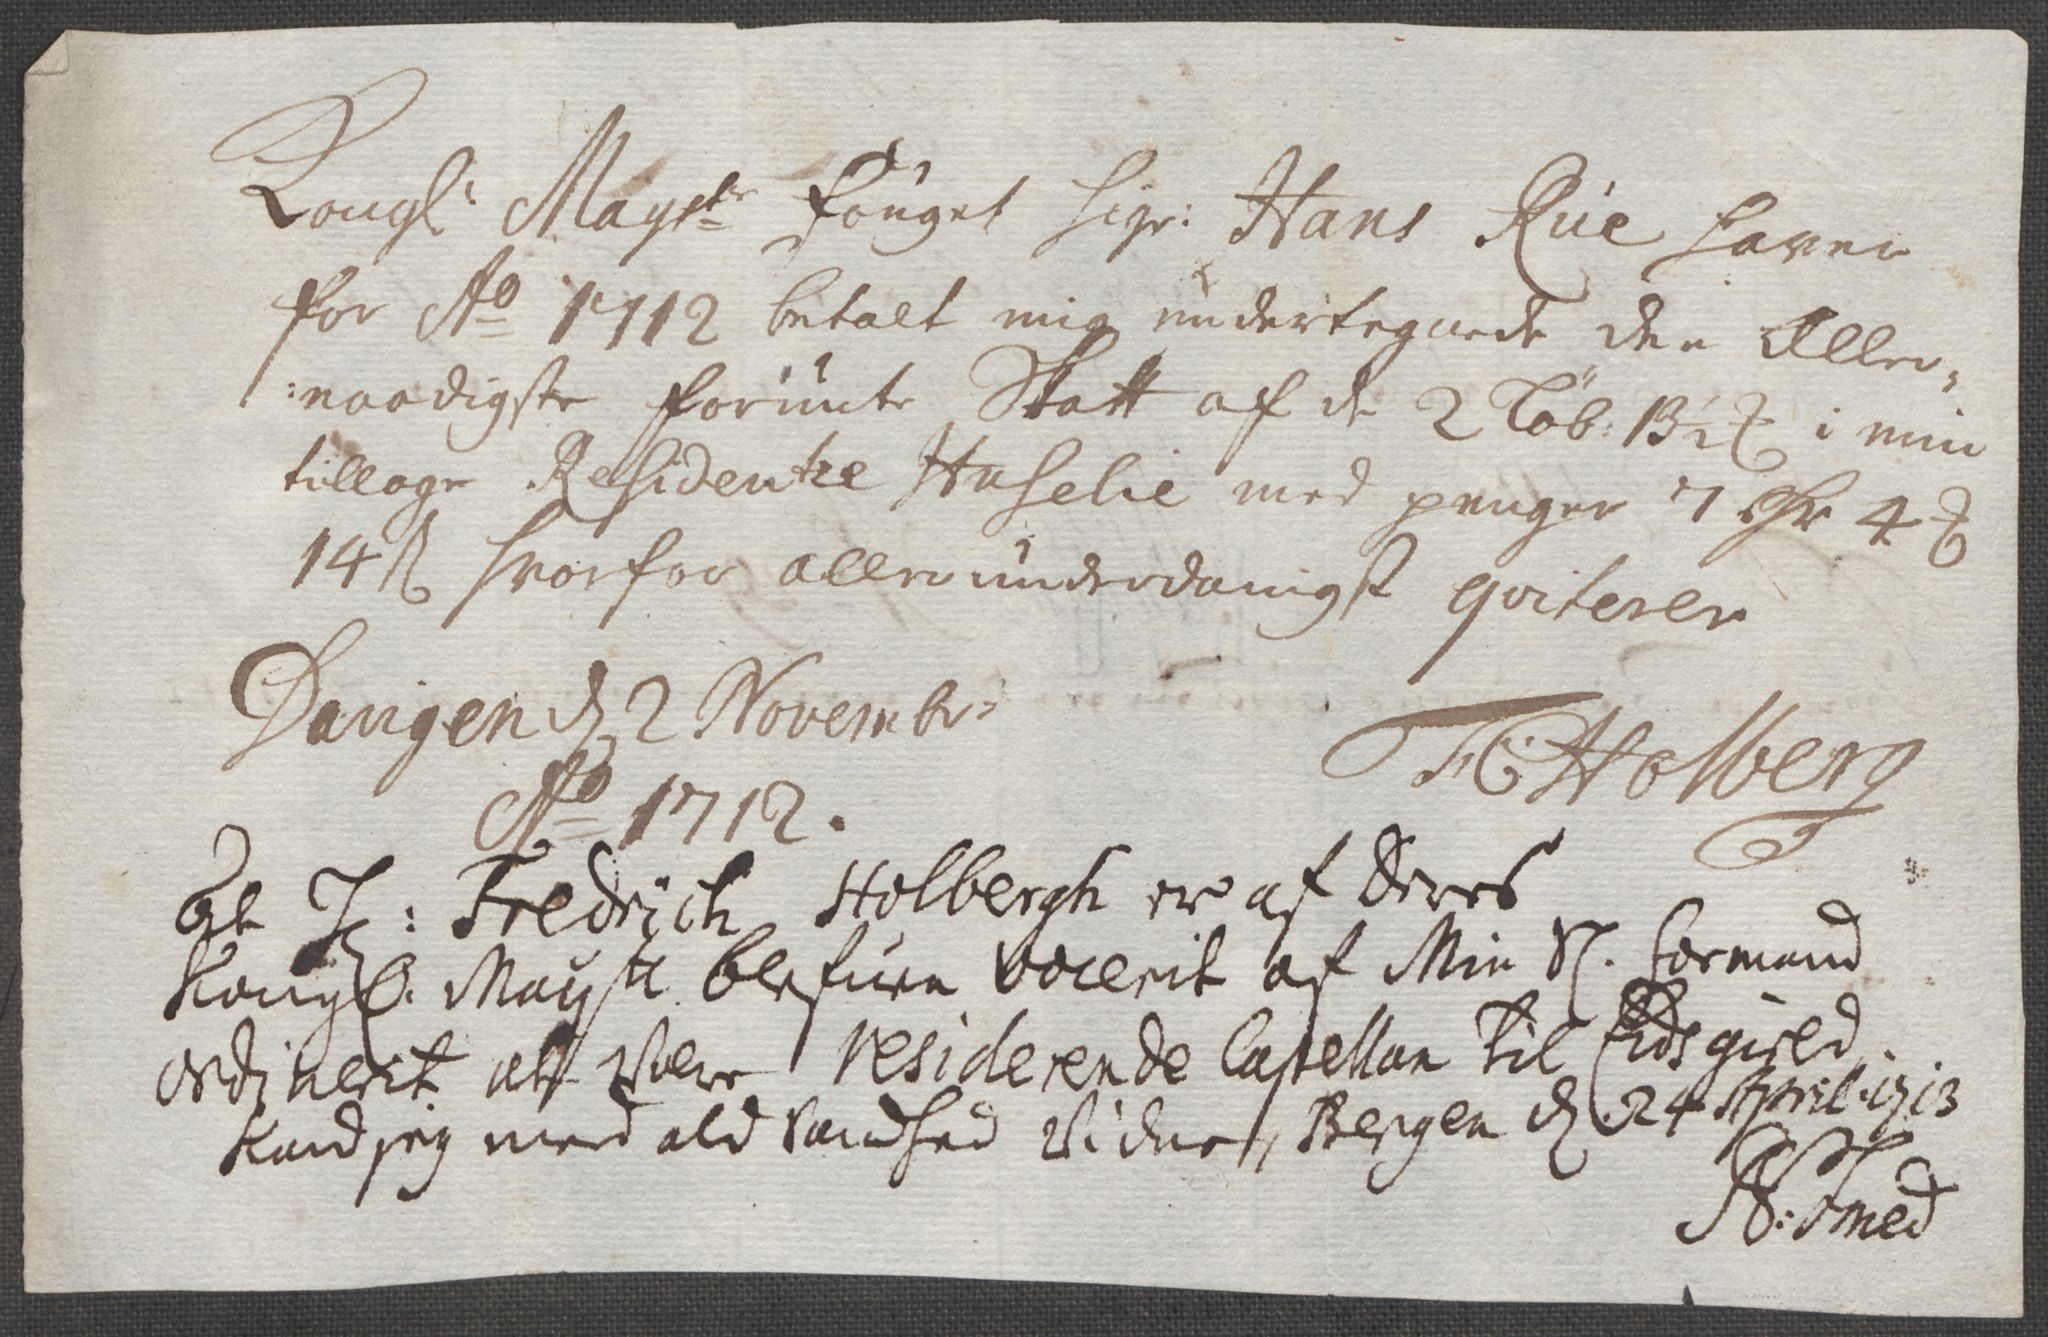 Kongl: Maysts fouget Sigr: Hans Rüe haver
for Ao 1712 betalt mig undertegnede den Aller„
:naadigste forünte Skatt af de 2 Löb: 13½ ℔ i min
tillagde Residentze Huselie med penger 7 Dr 4 ℔
14 ß hvorfor alleründerdanigst qviterer
Dangen d 2 Novembr:
Ao 1712.
FC Holberg
At Hr: Fredrich Holbergh er af Deres
Kongl. Mayst. befuren vocerit af Min Sl. Formand
ordinerit att være residerende Capellan til Eidsgield
Kand jeg med ald Sandhed Vidne, Bergen d 24 April 1713
Smed